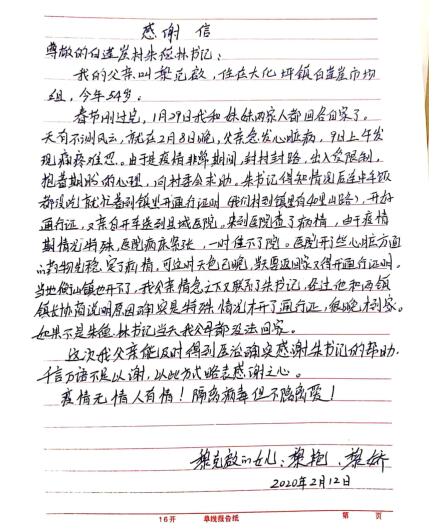 感谢信
尊敬的白莲崖村朱德林书记：
我的父亲叫黎克啟，住在大化坪镇白莲崖市场
组，今年54岁。
春节刚过完，1月29日我和妹妹两家人都回各自家了。
天有不测风云，就在2月8日晚，父亲急发心脏病，9日上午发
现病疼难忍。由于是疫情非常期间，封村封路，出入受限制，
抱着期盼的心理，向村委会求助。朱书记得知情况后连中午饭
都没吃就忙着到镇里开通行证明（我们村到镇里有40里山路），开好
通行证，又亲自开车送到县城医院。来到医院查了病情，由于疫情
期情况特殊，医院病床紧张，一时住不了院。医院开了些心脏方面
的药物先稳定了病情，可这时天色已晚，
当地衡山镇也开不了，我父亲情急之下又联系了朱书记，经过他和两镇
镇长协商说明原因确实是特殊情况才开了通行证，很晚才到家。
如果不是朱德林书记当天我父母都没法回家。
这次我父亲能及时得到医治确实感谢朱书记的帮助，
千言万语不足以谢，以此方式略表感谢之心。
疫情无情人有情！隔离病毒但不隔离爱！
黎克啟的女儿：黎艳、黎娇
2020年2月12日
16开 单线报告纸 第 页